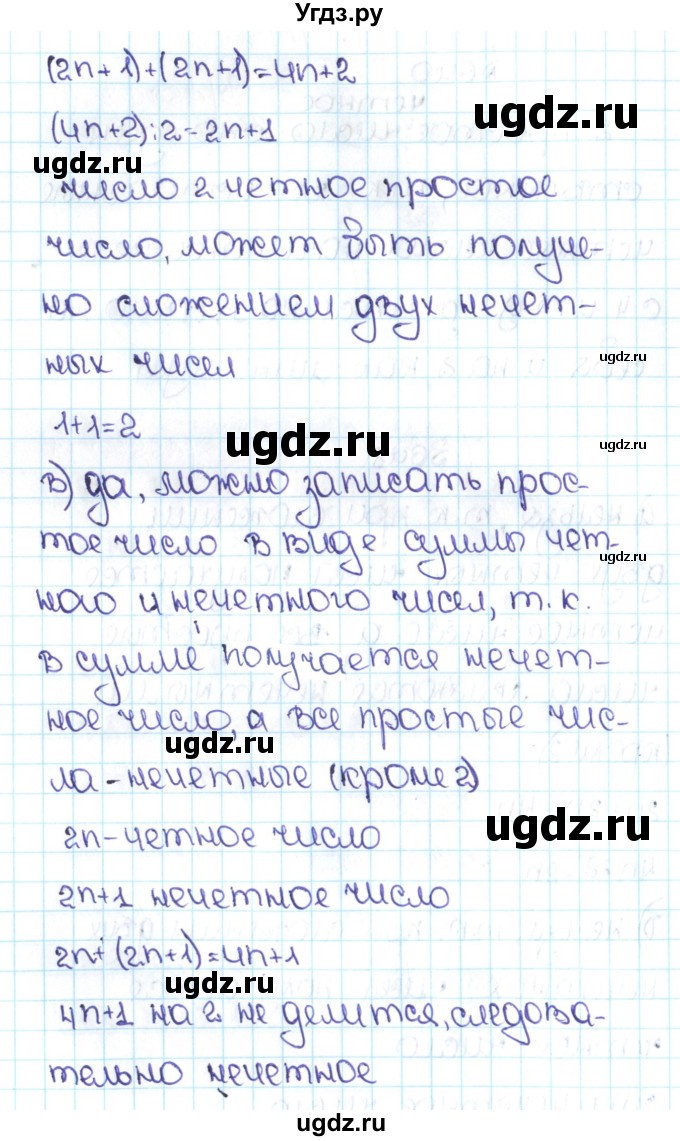 Угдз.ру
(2n+1)+(2n+1)=4n+2
ugdz.ru
(4n+2):2-2n+1
ugdz.ru
число 2 четное простое
число, может быть получе-
но сложением двух нечет-
ных чисел
ugdz.ru
1+1=2
ugdz.ru
в) да, можно записать прос-
тое число в виде суммы чет-
ugdz.ru
ного и нечетного чисел, т.к.
в сумме получается нечет-
ное число, а все простые чис-
ugdz.ru
ла - нечетные (кроме 2)
2n-четное число
ugdz.ru
2n+1 нечетное число
2n+(2n+1)=4n+1
ugdz.ru
4n+1 на 2 не делится, следова-
тельно нечетное
ugdz.ru